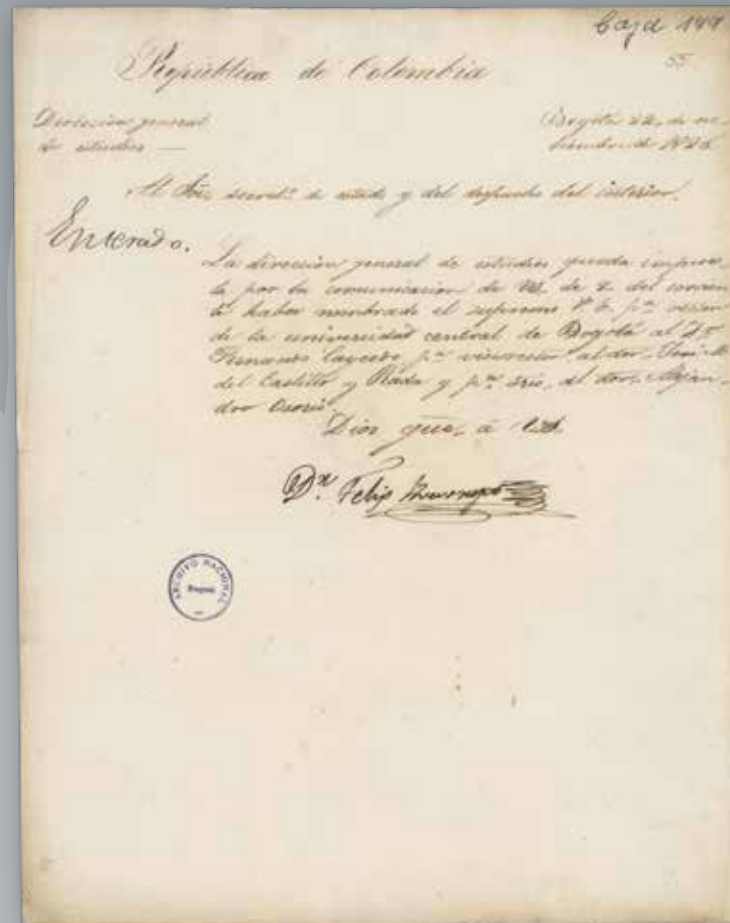 Caja 149
55
República de Colombia
Direccion general
de estudios —
Bogotá 22, de no-
viembre de 1826
Al Sor. secreto. de estado y del despacho del interior.
Enterado.
La direccion general de estudios queda impues-
ta por la comunicacion de VS. de 2 del
de haber nombrado el supremo P. E. pa. rector
de la universidad central de Bogotá al Dr.
Fernando Caycedo pa. vicerector al dor. José M.
del Castillo y Rada y pa. srio. al dor. Alejan-
dro Osorio.
Dios gue. á VS.
Dr. Felix
ARCHIVO NACIONAL
Bogotá